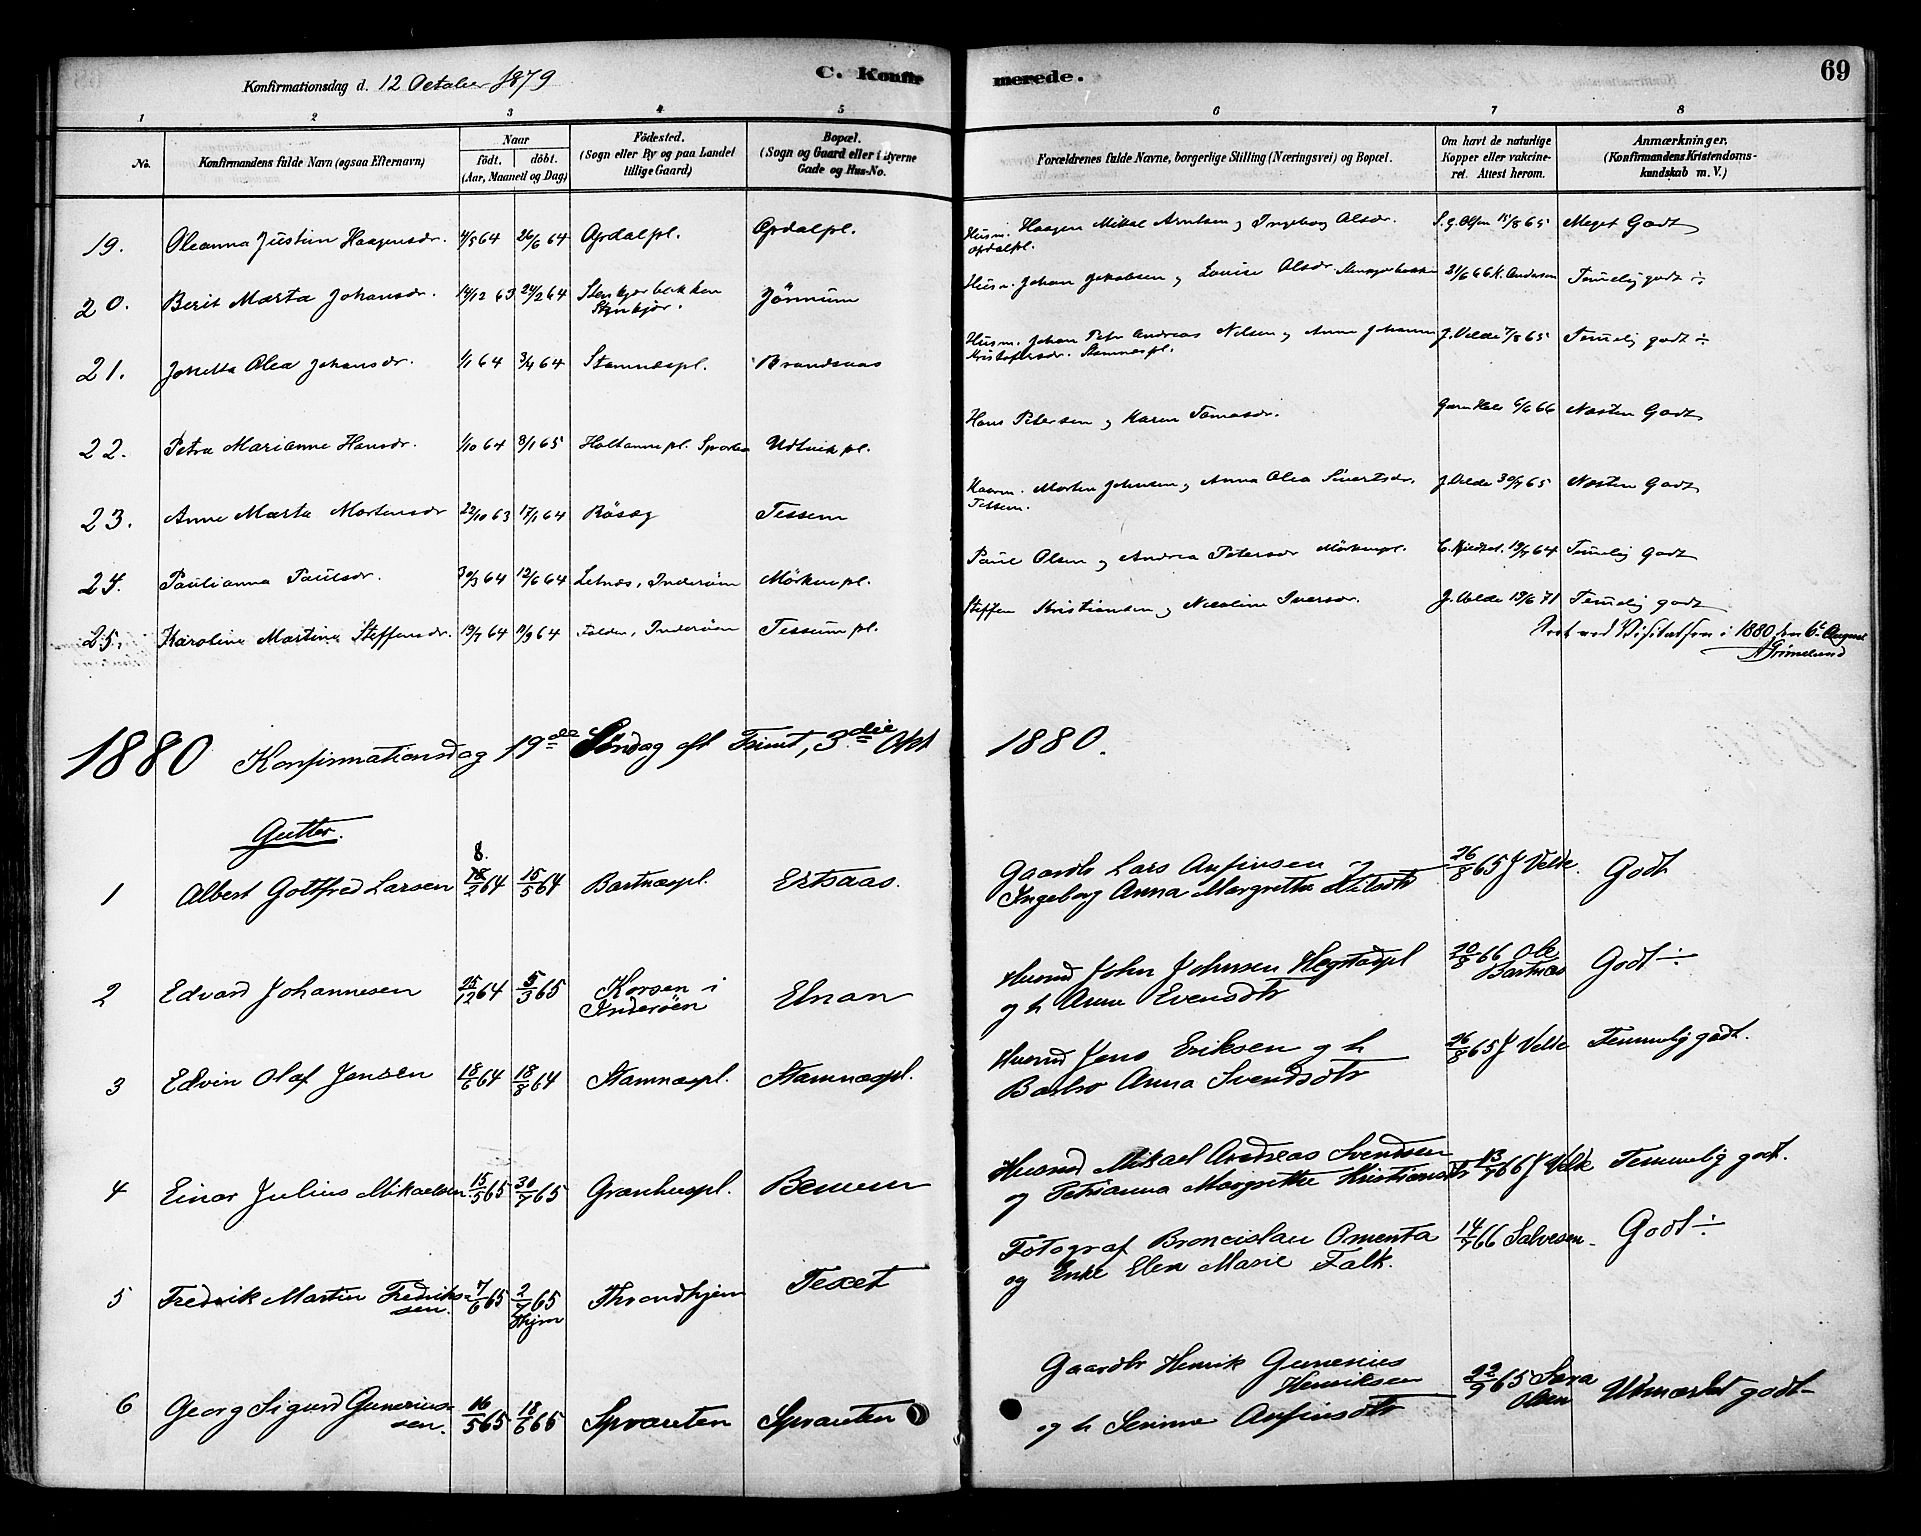 Konfirmationsdag d. 12 October 1879
C. Konfirmerede.
69
1 2 3 4 5 6 7 8
No.
Konfirmandens fulde Navn (ogsaa Efternavn)
Naar
födt. döbt.
(Aar, Maaned og Dag)
Födested.
(Sogn eller By og paa Landet
tillige Gaard)
Bopæl.
(Sogn og Gaard eller i Byerne
Gade og Hus-No.
Forældrenes fulde Navne, borgerlige Stilling (Næringsvei) og Bopæl.
Om havt de naturlige
Kopper eller vakcine-
ret. Attest herom.
Anmærkninger,
(Konfirmandens Kristendoms-
kundskab m. V.)
19. Oleanna Justine Haagensdr. 4/5 64 26/6 64 Opdalpl. Opdalpl. Husm. Haagen Mikal Arntsen og Ingeborg Olsdr. S. G. Olsen 15/8 65 Meget Godt
Opdalpl.
20. Berit Marta Johansdr. 14/12 63 24/2 64 Stenkjerbakken Jörnum Husm. Johan Jakobsen og Lovise Olsdr. Stenkjerbakken 21/6 66 K. Andersen Temelig godt ÷
Stenkjör.
21. Jonetta Olea Johansdr. 1/1 64 3/4 64 Stamnæspl. Brandsaas Husm. Johan Petr Andreas Nilsen og Anne Johanna J. Velde 7/8 65 Temelig godt ÷
Kristofersdr. Stamnæspl.
22. Petra Marianne Hansdr. 1/10 64 8/1 65 Holtannepl. Udtvikpl. Hans Petersen og Karen Tomasdr. 6/6 66 Næsten Godt
23. Anne Marta Mortensdr 22/10 63 17/1 64 Röseg Tessem Morten Johnsen og Anna Olea Sivertsdr. J. Velde 30/7 65 Næsten Godt
Tessem.
24. Paulianna Paulsdr. 30/3 64 12/6 64 Letnes, Inderöen Mörkvepl. Paul Olsen og Andrea Petersdr Mörkvepl. 19/7 64 Temelig Godt
25. Karoline Martine Steffensdr. 19/7 64 11/9 64 Folden, Inderöen Tessumpl. Steffen Kristiansen og Nicoline Iversdr. J. Velde 19/6 71 Temelig godt
Seet ved Visitatsen i 1880 den 6te August
AGrimelund
1880 Konfirmationsdag 19de Söndag eft Trinit, 3die Okt 1880.
Gutter.
8.
1 Albert Gottfred Larsen 18/2 64 15/5 64 Bartnæspl. Ertsaas. Gaardb Lars Anfinsen og 26/8 65 J Velde. Godt
Ingeborg Anna Margrethe Nilsdtr
2 Edvard Johannesen 25/12 64 5/3 65 Korsen i Elnan Husmd John Johnsen Hegstadpl 20/8 66 Ole Godt ÷
Inderöen og h Anne Evensdtr Bartnæs
3 Edvin Olaf Jensen 18/6 64 18/8 64 Stamnæspl. Stamnæspl. Husmd Jens Eriksen og h 26/8 65 J Velde Temmelig godt.
Barbro Anna Svendsdtr
4 Einar Julius Mikaelsen 15/5 65 30/7 65 Granhuspl. Bemem Husmd Mikael Andreas Svendsen 13/7 66 J Velde Temmelig godt.
og Petrianna Margrethe Kristiansdtr
5 Fredrik Martin Fredriks- 7/6 65 2/7 65 Throndhjem Texet Fotograf Broncislau Omenta 14/7 66 Salvesen. Godt ÷
sen. Thjem og Enke Elen Marie Falk.
6 Georg Sigurd Gunerius- 16/5 65 18/6 65 Spvarsten Spvarsten Gaardbr Henrik Gunerius 22/9 65 Sara Udmærket godt
sen. Henriksen Olsen
og h Serine Anfinsdtr